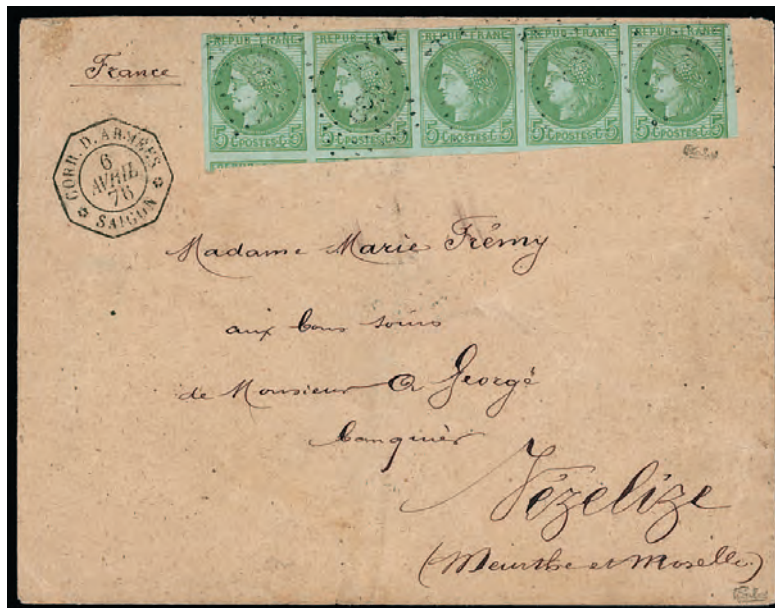 France
REPUB. FRANC. REPUB. FRANC. REPUB. FRANC. REPUB. FRANC. REPUB. FRANC.
5 C POSTES C 5 5 C POSTES C 5 5 C POSTES C 5 5 C POSTES C 5 5 C POSTES C 5
CORR. D. ARMÉES
6
AVRIL
76
SAIGON
Madame Marie Frémy
aux bons soins
de Monsieur Georgé
banquier
Vézelize
(Meurthe et Moselle)